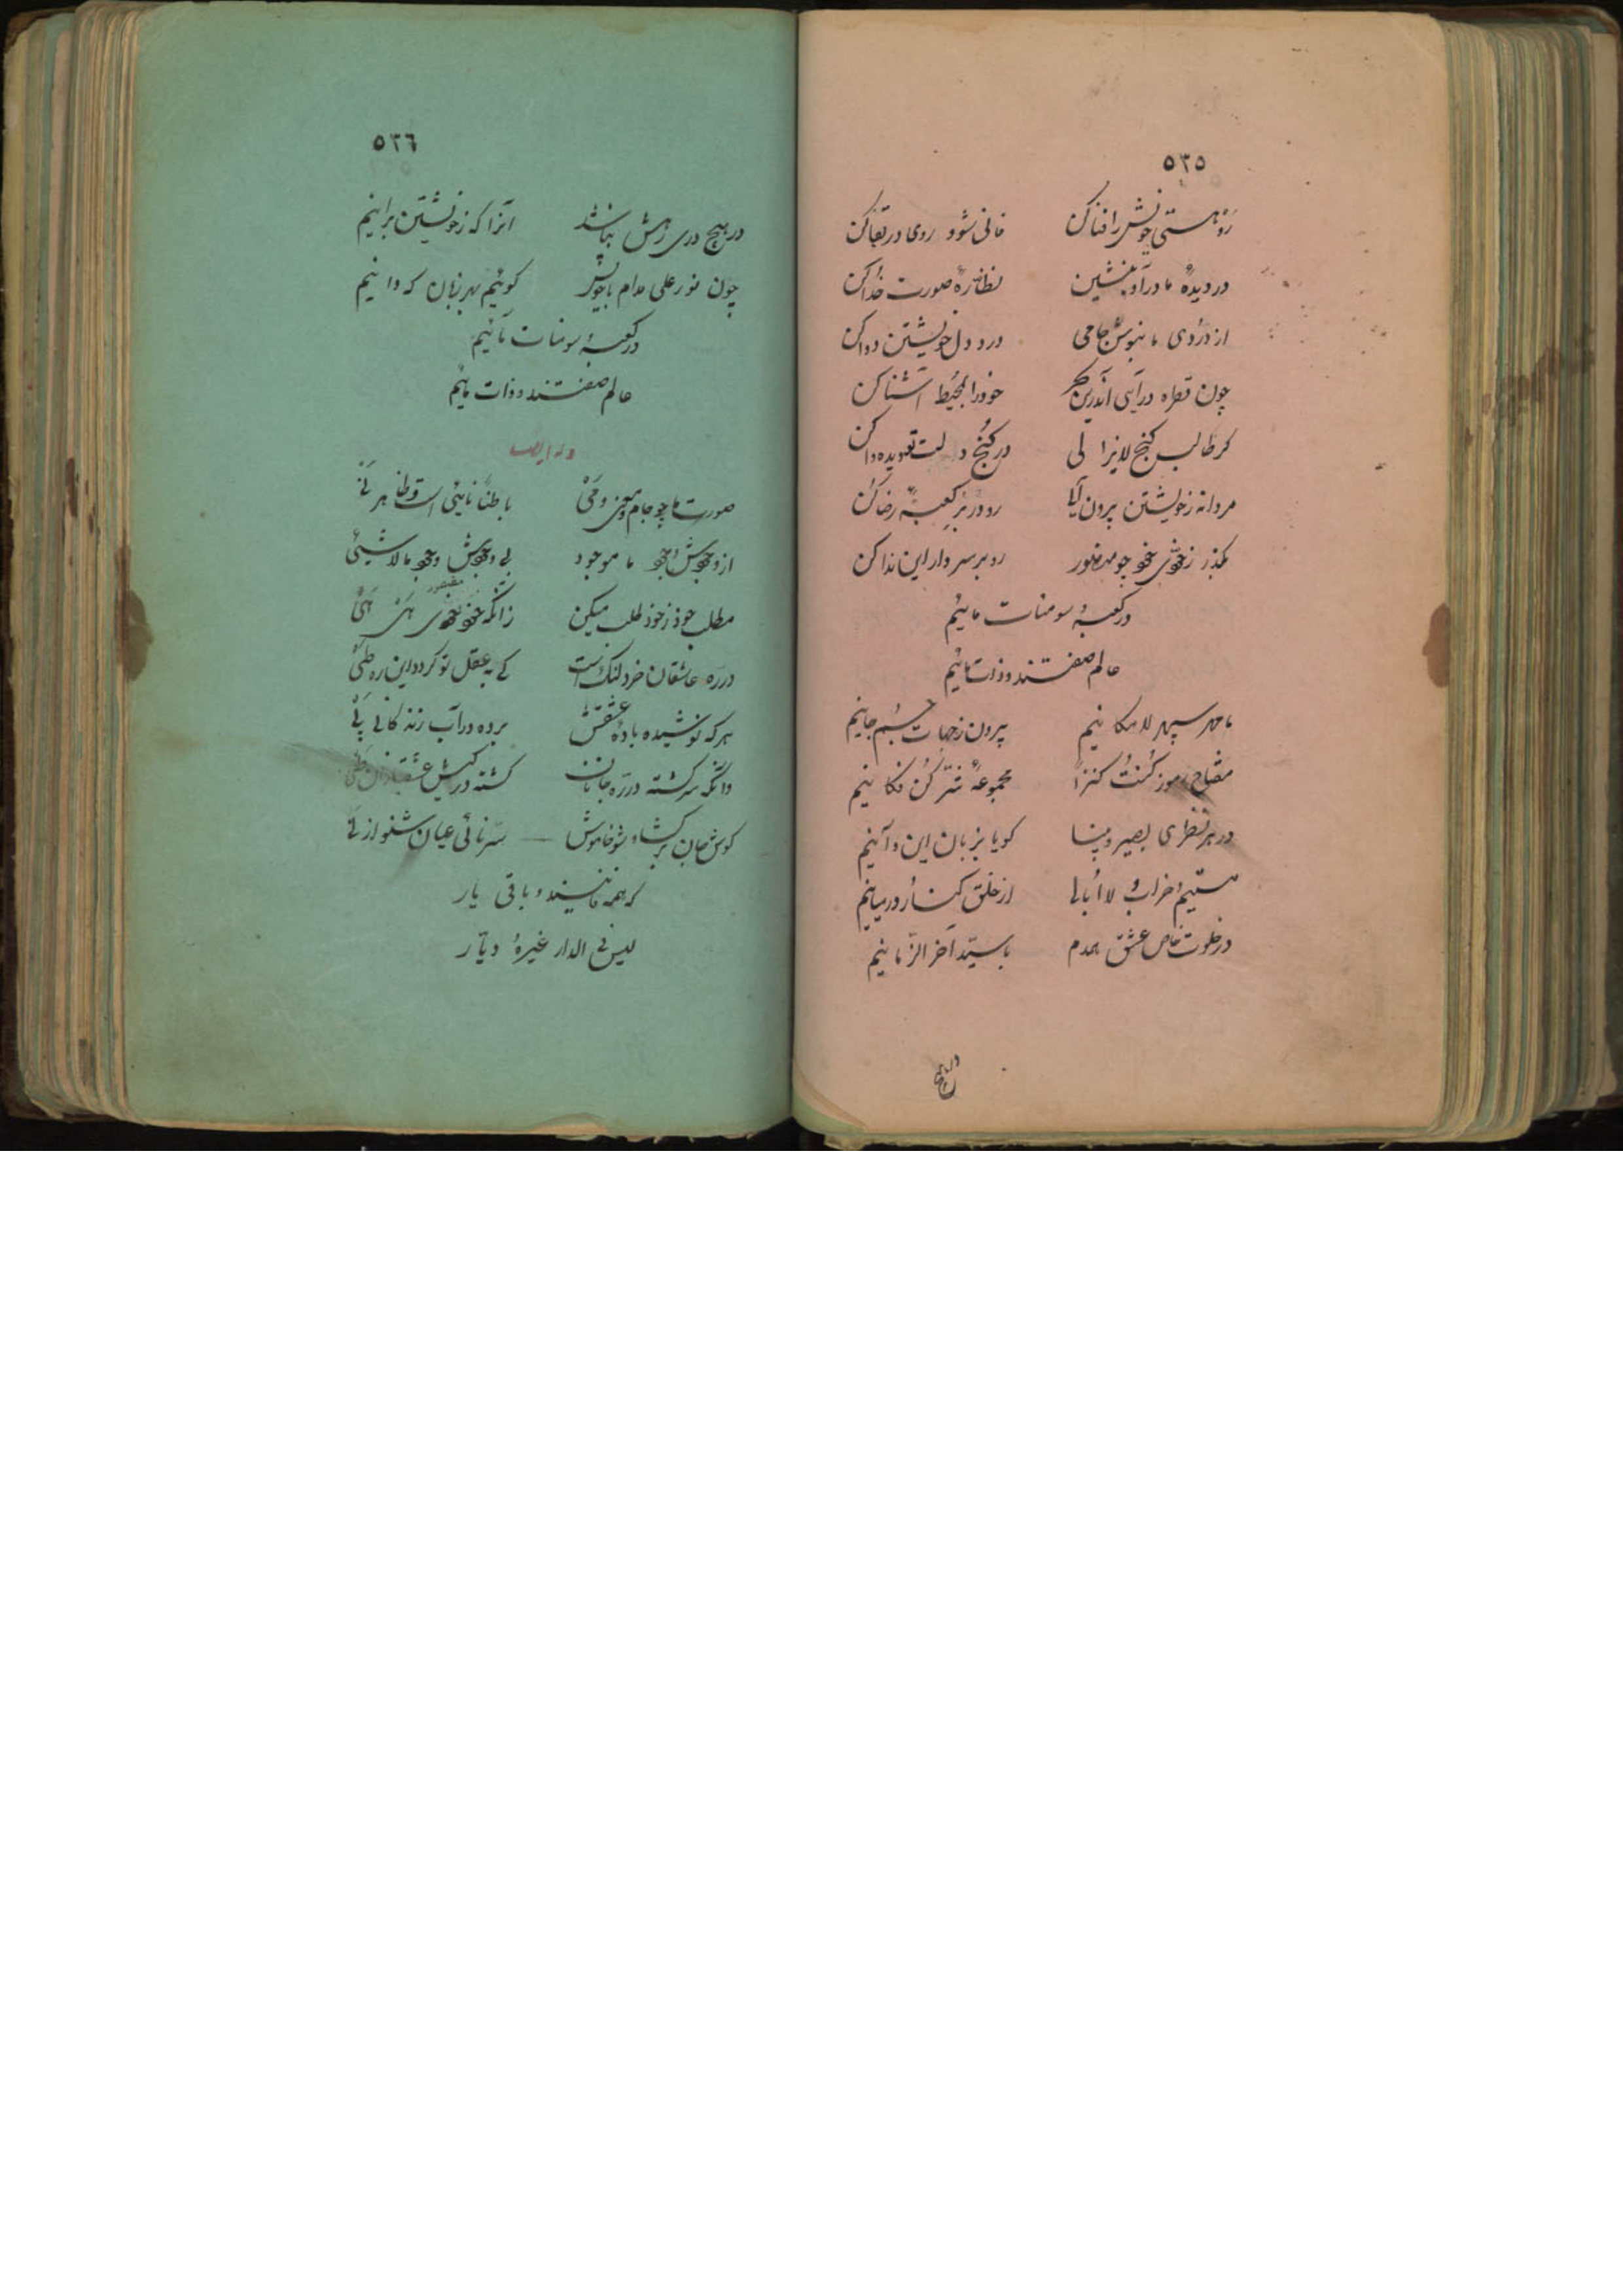 ٥٢٥
رو هستی خویش را فنا کن فانی شو و روی در بقا کن
در دیدهٔ ما درآ و بنشین نظّارهٔ صورت خدا کن
از دُردی ما بنوش جامی درد دل خویشتن دوا کن
چون قطره درآی اندرین بحر خود را بمحیط آشنا کن
کر طالب کنج لایزالی در کُنج دلت تو دیده وا کن
مردانه ز خویشتن برون آی رو در بر کعبهٔ رضا کن
بکذر ز خودی خود چو منصور رو بر سر دار این ندا کن
در کعبهٔ و سومنات مائیم
عالم صفتند و ذات مائیم
ما مهر سپهر لامکانیم بیرون ز جهات جسم و جانیم
مفتاح رموز کُنتُ کنزاً مجموعهٔ سّر کُن فکانیم
در هر نظری بصیر و بینا کویا بزبان این و آنیم
مستیم و خراب و لا اُبالی از خلق کنار و در میانیم
در خلوت خاص عشق همدم با سیّد آخر الزّمانیم
در هیچ
٥٢٦
در هیچ دری رهش نباشد آنرا که ز خویشتن برانیم
چون نور علی مدام با خویش کوئیم بهر زبان که دانیم
در کعبهٔ و سومنات مائیم
عالم صفتند و ذات مائیم
وله ایضا
صورت ما چو جام و معنی و می باطناً نایئی است و ظاهر نَی
از وجودش وجود ما موجود بی وجودش وجود ما لا شیئی
مطلب جو ز خود طلب میکن زانکه مقصود خود خودی هَی هَی
در ره عاشقان خرد لنک است کی به عقل تو کردد این ره طیّ
هر که نوشیده بادهٔ عشقش برده در آب زندکانی پَی
وانکه سر کشته در ره جانان کشته در کیش عشقبازان
کوش جان بر کشا و شو خاموش سّر نائی عیان شنو از نَی
که همه فانیند و باقی یار
لیس فی الدار غیرهُ دیّار